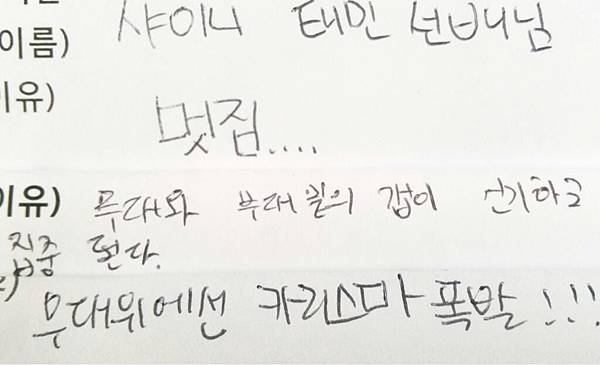 이름) 샤이니 태민 선배님
이유)
멋짐....
이유) 무대와 무대 밑의 갭이 신기하고
집중 된다.
무대위에선 카리스마 폭발!!!